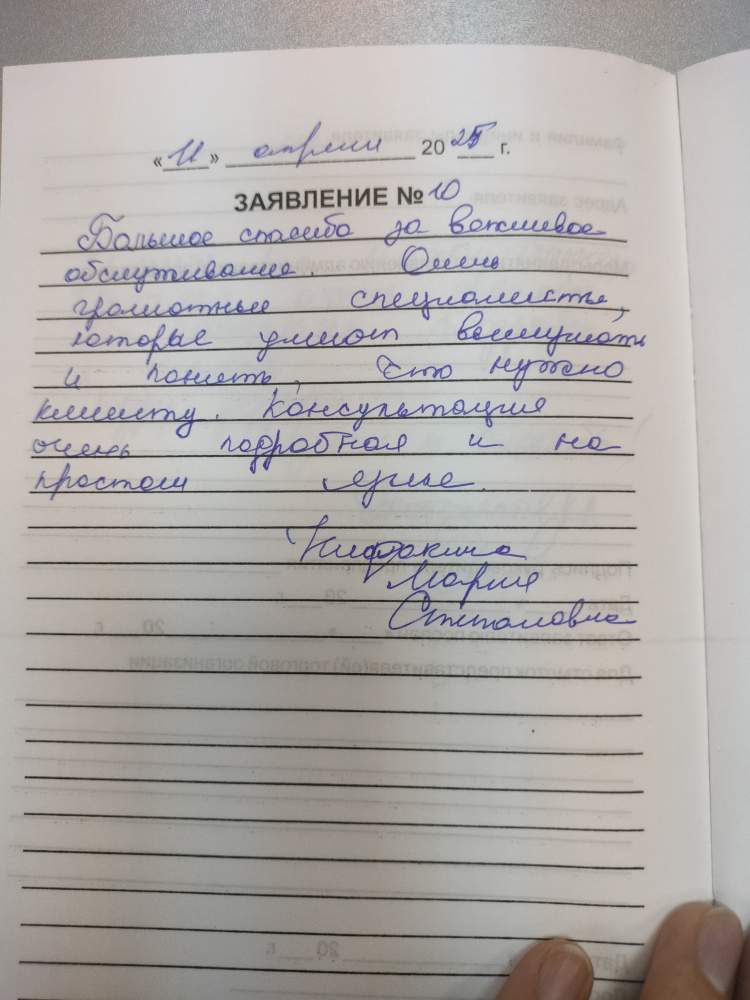 «11» апреля 2025 г.
ЗАЯВЛЕНИЕ № 10
Большое спасибо за вежливое
обслуживание. Очень
грамотные специалисты,
которые умеют выслушать
и понять, что нужно
клиенту. Консультация
очень подробная и на
простом языке.
Мария
Степановна